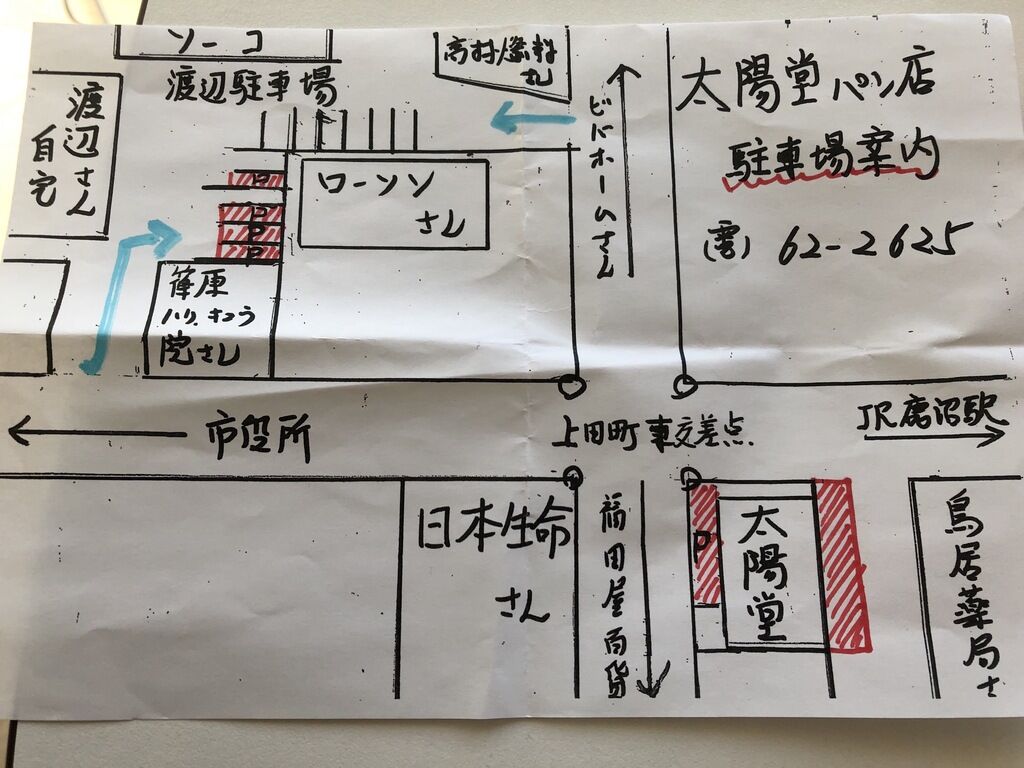 ソーコ
高村燃料
さん
太陽堂パン店
駐車場案内
(電) 62-2625
渡辺駐車場
渡辺さん
自宅
ビバホームさん
ローソン
さん
P
P
P
P
篠原
ハリ、キュウ
院さん
市役所
上田町東交差点
JR鹿沼駅
日本生命
さん
福田屋百貨
P
太陽堂
鳥居薬局さ